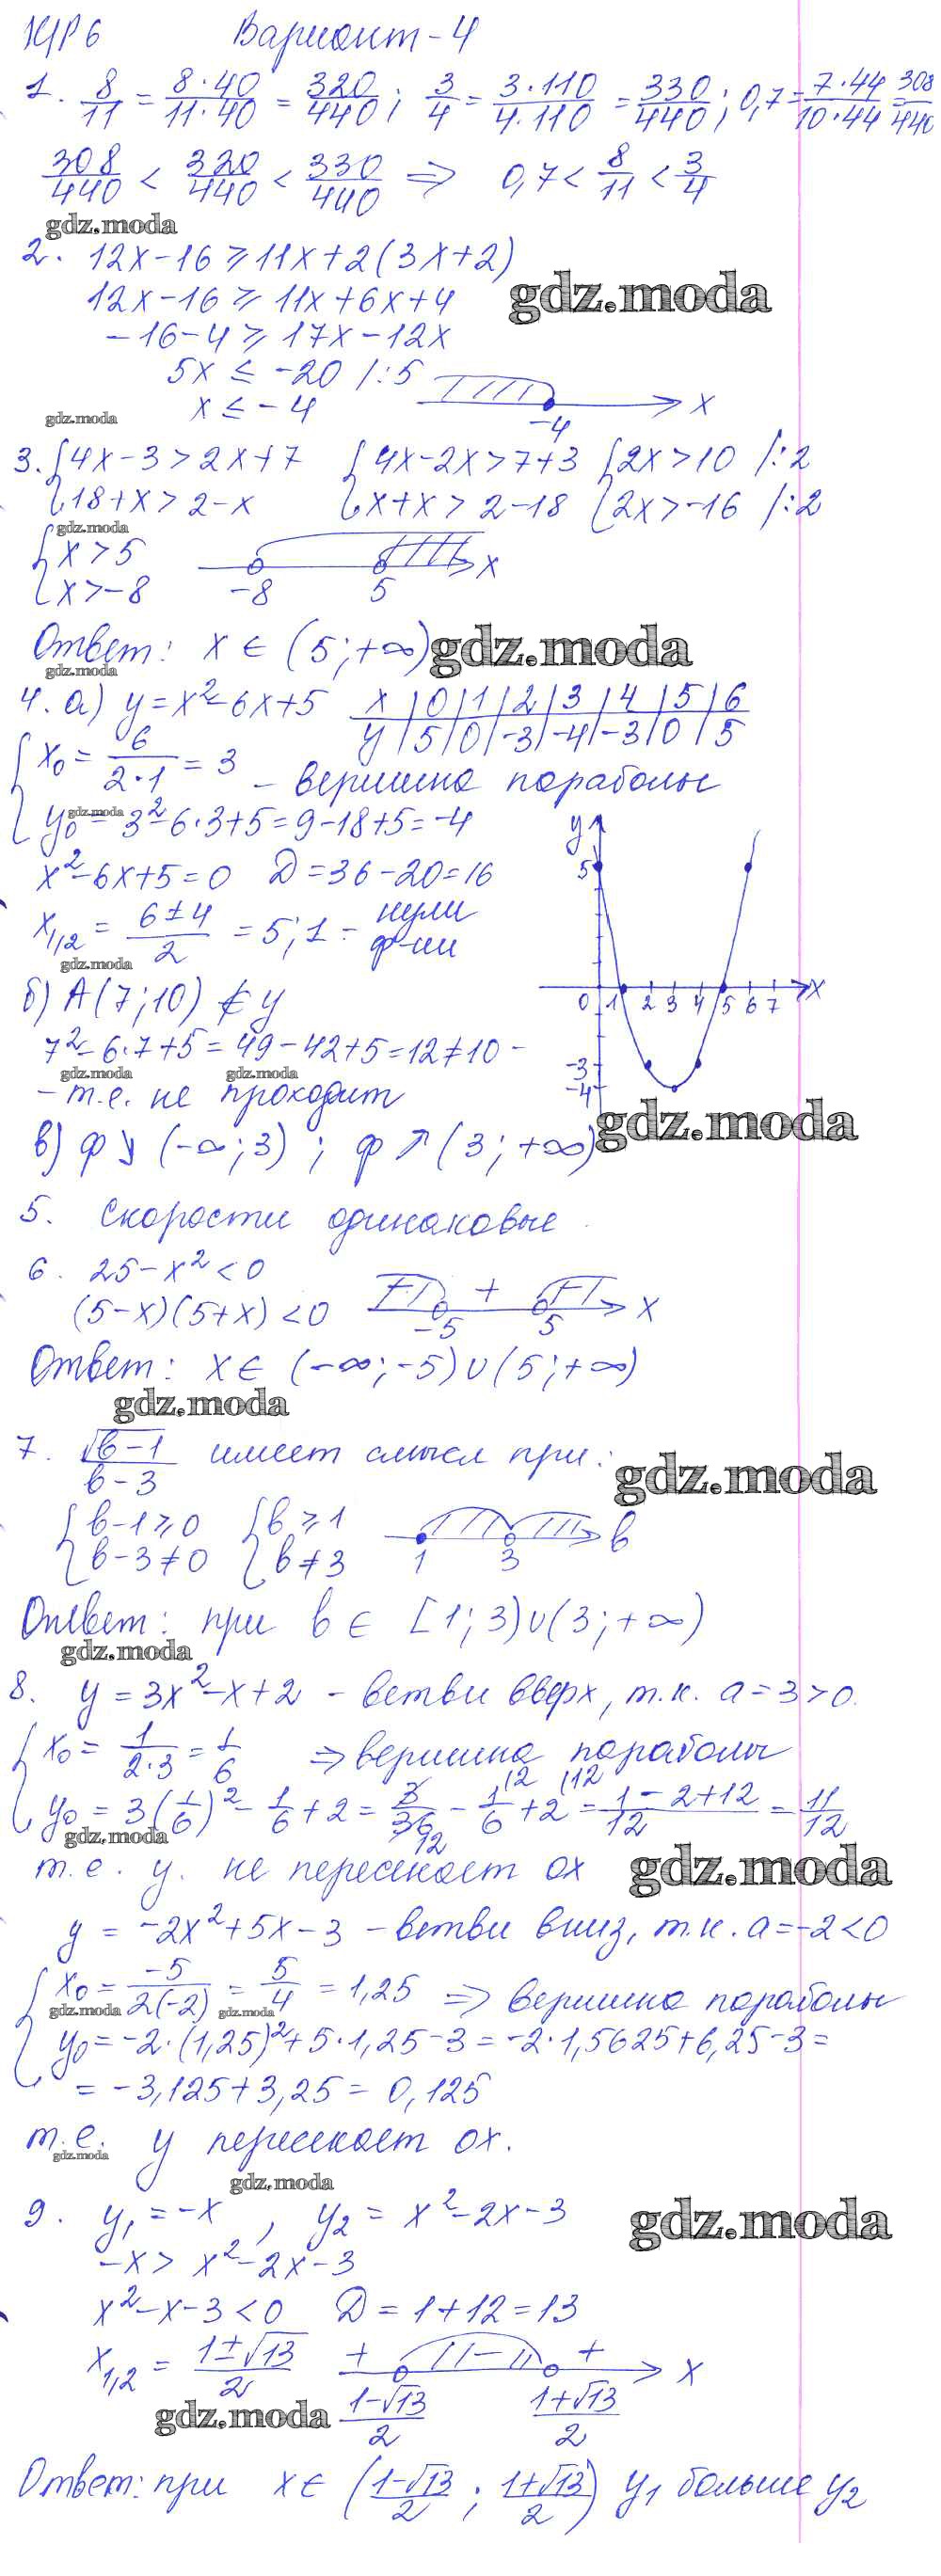 КР 6 Вариант-4
1. 8/11 = 8·40/11·40 = 320/440; 3/4 = 3·110/4·110 = 330/440; 0,7 = 7·44/10·44 = 308/440
308/440 < 320/440 < 330/440 ⇒ 0,7 < 8/11 < 3/4
gdz.moda
2. 12x-16 ⩾ 11x+2(3x+2)
12x-16 ⩾ 11x+6x+4
gdz.moda
-16-4 ⩾ 17x-12x
5x ≤ -20 /:5
x ≤ -4
-4 x
gdz.moda
3. {4x-3>2x+7 {4x-2x>7+3 {2x>10 /:2
{18+x>2-x {x+x>2-18 {2x>-16 /:2
gdz.moda
{x>5
{x>-8
-8 5 x
Ответ: x ∈ (5;+∞)
gdz.moda
gdz.moda
4. а) y=x²-6x+5
x | 0 | 1 | 2 | 3 | 4 | 5 | 6
y | 5 | 0 | -3 | -4 | -3 | 0 | 5
{x₀ = 6/2·1 = 3 - вершина параболы
gdz.moda
{y₀ = 3²-6·3+5=9-18+5=-4
x²-6x+5=0 D=36-20=16
x₁,₂ = 6±4/2 = 5;1 - нули ф-ии
gdz.moda
y
5
0 1 2 3 4 5 6 7 x
-3
-4
б) A(7;10) ∉ y
7²-6·7+5=49-42+5=12≠10 -
gdz.moda gdz.moda
- т.е. не проходит
gdz.moda
в) ф ↘ (-∞;3) ; ф ↗ (3;+∞)
5. Скорости одинаковые.
6. 25-x²<0
(5-x)(5+x)<0
- + - -5 5 x
Ответ: x ∈ (-∞;-5)∪(5;+∞)
gdz.moda
7. √b-1/b-3 имеет смысл при:
gdz.moda
{b-1⩾0 {b⩾1
{b-3≠0 {b≠3
1 3 b
Ответ: при b ∈ [1;3)∪(3;+∞)
gdz.moda
8. y = 3x²-x+2 - ветви вверх, т.к. a=3>0.
{x₀ = 1/2·3 = 1/6 ⇒ вершина параболы
{y₀ = 3(1/6)² - 1/6 + 2 = 3/36 - 1/6 + 2 = 1-2+12/12 = 11/12
12 (2 (12
gdz.moda
т.е. y. не пересекает ox
gdz.moda
y = -2x²+5x-3 - ветви вниз, т.к. a=-2<0
{x₀ = -5/2(-2) = 5/4 = 1,25 ⇒ вершина параболы
gdz.moda gdz.moda
{y₀ = -2·(1,25)²+5·1,25-3=-2·1,5625+6,25-3=
= -3,125+3,25= 0,125
т.е. y пересекает ox.
gdz.moda
gdz.moda
9. y₁=-x , y₂= x²-2x-3
gdz.moda
-x> x²-2x-3
x²-x-3<0 D=1+12=13
x₁,₂ = 1±√13/2
+ - + x
1-√13/2 1+√13/2
gdz.moda
Ответ: при x ∈ (1-√13/2 ; 1+√13/2) y₁ больше y₂